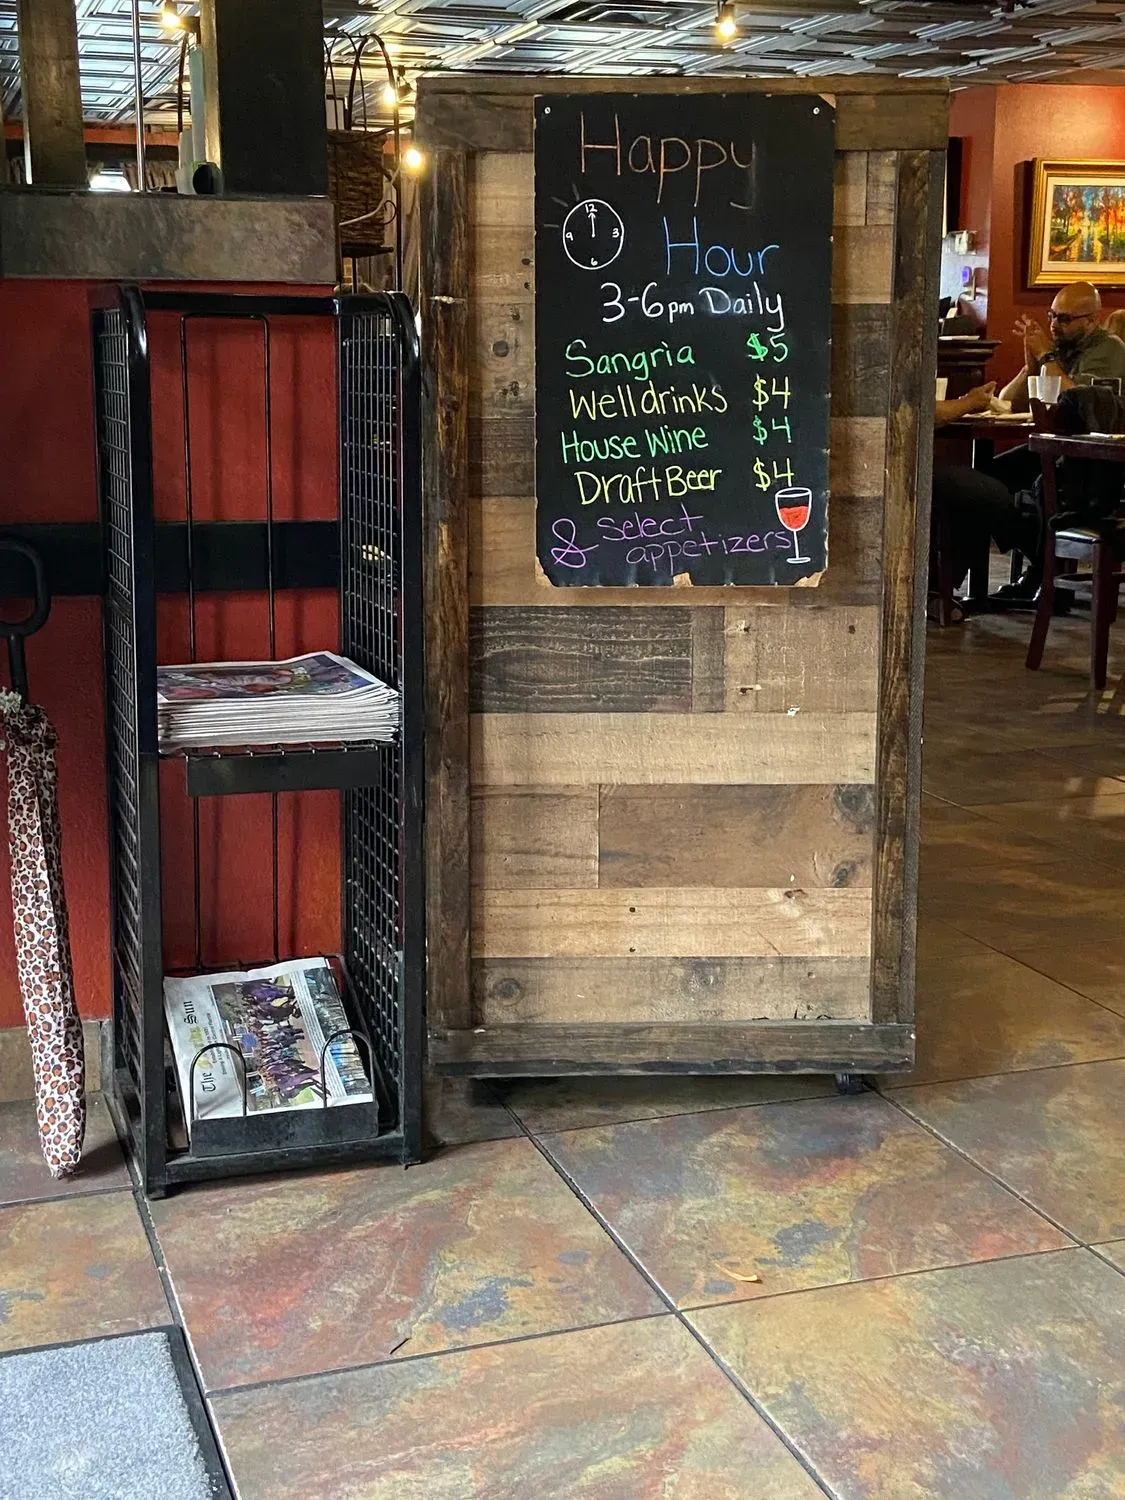 Happy
12
9 3
6
Hour
3-6pm Daily
Sangria $5
Well drinks $4
House Wine $4
Draft Beer $4
& select
appetizers
The
Sun